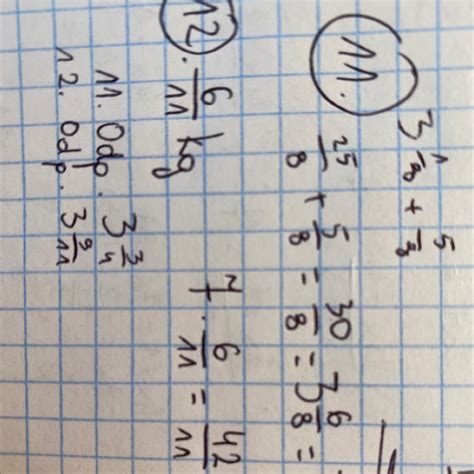 11.
3 1/8 + 5/8
25/8 + 5/8 = 30/8 = 3 6/8 =
12. 6/11 kg
7 · 6/11 = 42/11
11. Odp. 3 3/4
12. Odp. 3 9/11